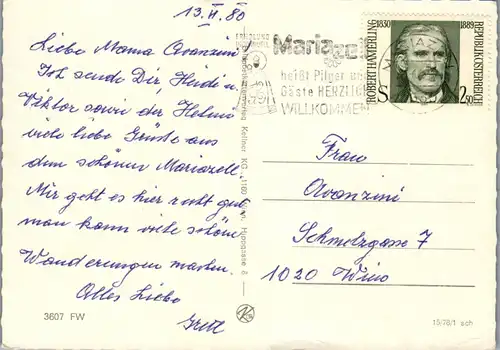 13.II.80
Liebe Mama Avanzini
Ich sende Dir, Heidi u.
Viktor sowie der Helene
viele liebe Grüße aus
dem schönen Mariazell.
Mir geht es hier recht gut
man kann viele schöne
Wanderungen machen.
Alles Liebe
Gretl
3607 FW
ERHOLUNG
Mariazell
heißt Pilger und
Gäste HERZLICH
WILLKOMMEN
ROBERT HAMERLING 1830
1889 REPUBLIK ÖSTERREICH
S 2.50
Kellner KG, 1160 Wien, Hippgasse 8
Frau
Avanzini
Schmelzgasse 7
1020 Wien
15/78/1 sch